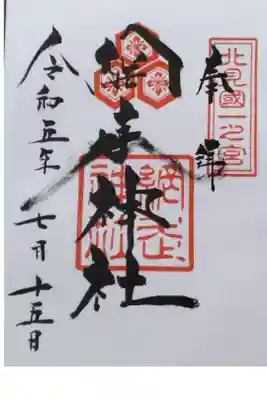 奉拝
北見國一之宮
網走神社
網走神社
令和五年 七月 十五日